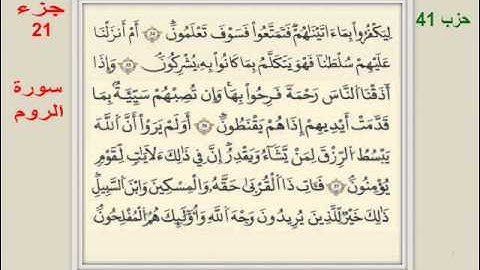 جزء
21
حزب 41
سورة
الروم
لِيَكْفُرُوا۟ بِمَآ ءَاتَيْنَٰهُمْ فَتَمَتَّعُوا۟ فَسَوْفَ تَعْلَمُونَ أَمْ أَنزَلْنَا
عَلَيْهِمْ سُلْطَٰنًا فَهُوَ يَتَكَلَّمُ بِمَا كَانُوا۟ بِهِۦ يُشْرِكُونَ وَإِذَآ
أَذَقْنَا ٱلنَّاسَ رَحْمَةً فَرِحُوا۟ بِهَا وَإِن تُصِبْهُمْ سَيِّئَةٌۢ بِمَا
قَدَّمَتْ أَيْدِيهِمْ إِذَا هُمْ يَقْنَطُونَ أَوَلَمْ يَرَوْا۟ أَنَّ ٱللَّهَ
يَبْسُطُ ٱلرِّزْقَ لِمَن يَشَآءُ وَيَقْدِرُ إِنَّ فِى ذَٰلِكَ لَءَايَٰتٍ لِّقَوْمٍ
يُؤْمِنُونَ فَـَٔاتِ ذَا ٱلْقُرْبَىٰ حَقَّهُۥ وَٱلْمِسْكِينَ وَٱبْنَ ٱلسَّبِيلِ
ذَٰلِكَ خَيْرٌ لِّلَّذِينَ يُرِيدُونَ وَجْهَ ٱللَّهِ وَأُو۟لَٰٓئِكَ هُمُ ٱلْمُفْلِحُونَ